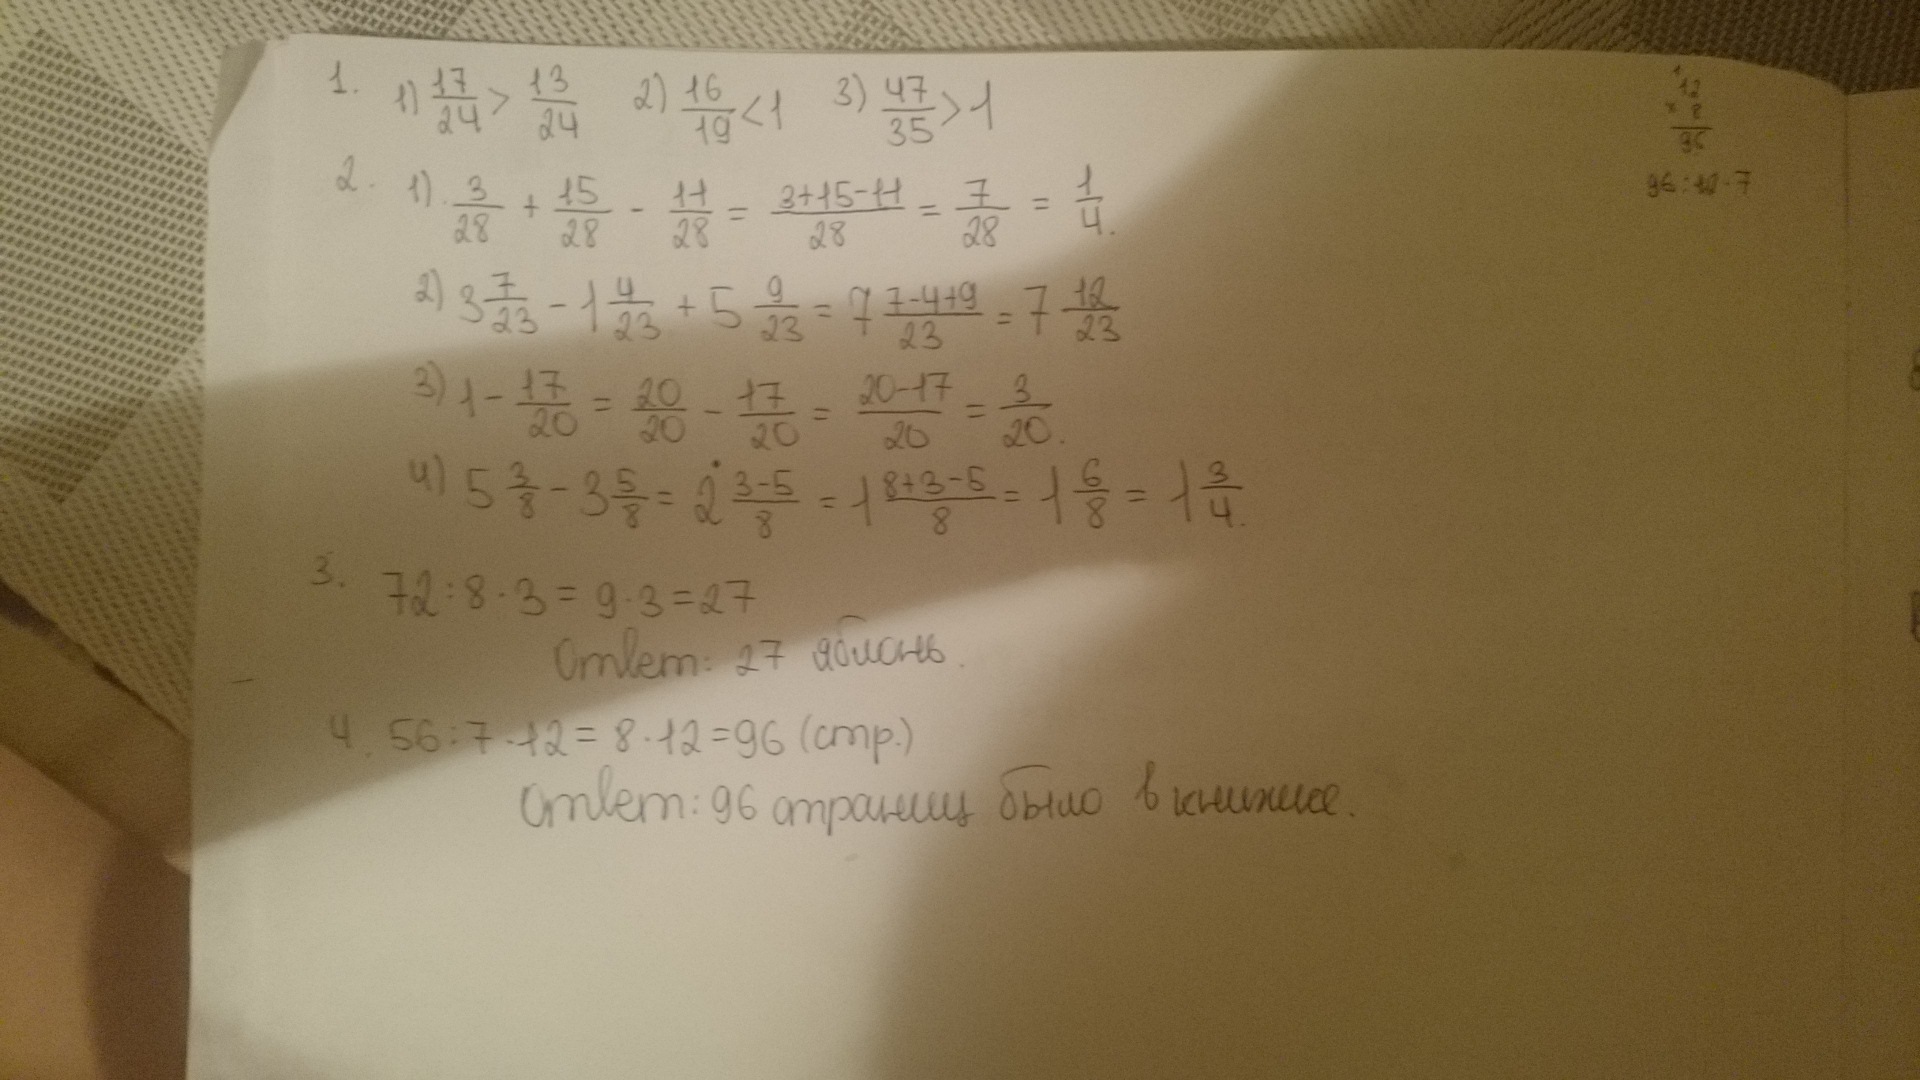 1. 1) 17/24 > 13/24 2) 16/19 < 1 3) 47/35 > 1
2. 1) 3/28 + 15/28 - 11/28 = (3+15-11)/28 = 7/28 = 1/4.
2) 3 7/23 - 1 4/23 + 5 9/23 = 7 (7-4+9)/23 = 7 12/23
3) 1 - 17/20 = 20/20 - 17/20 = (20-17)/20 = 3/20.
4) 5 3/8 - 3 5/8 = 2 (3-5)/8 = 1 (8+3-5)/8 = 1 6/8 = 1 3/4.
3. 72:8·3 = 9·3 = 27
Ответ: 27 яблонь.
4. 56:7·12 = 8·12 = 96 (стр.)
Ответ: 96 страниц было в книжке.
1
12
× 8
96
96:12·7